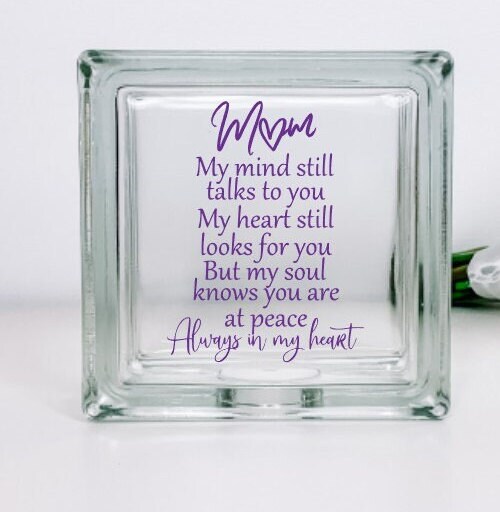 Mom
My mind still
talks to you
My heart still
looks for you
But my soul
knows you are
at peace
Always in my heart